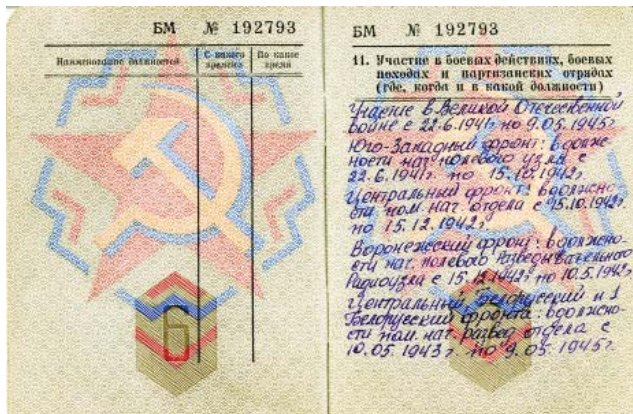 БМ № 192793
Наименование должностей
С какого времени
По какое время
6
БМ № 192793
11. Участие в боевых действиях, боевых
походах и партизанских отрядах
(где, когда и в какой должности)
Участие в Великой Отечественной
войне с 22.6.1941г. по 9.05.1945г.
Юго-Западный фронт: в долж-
ности нач. полевого узла с
22.6.1941г. по 15.10.1942г.
Центральный фронт: в должно-
сти пом. нач. отдела с 15.10.1942г.
по 15.12.1942г.
Воронежский фронт: в должно-
сти нач. полевого Разведывательного
Радиоузла с 15.12.1942г. по 10.5.1942г.
Центральный, Белорусский и 1
Белорусский фронта: в должно-
сти пом. нач. развед. отдела с
10.05.1943г. по 9.05.1945г.